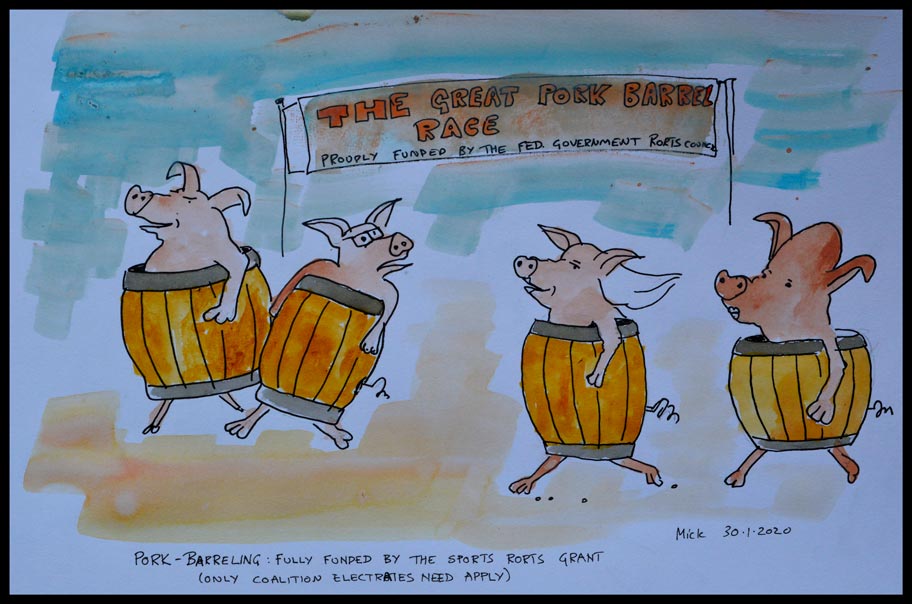 THE GREAT PORK BARREL
RACE
PROUDLY FUNDED BY THE FED. GOVERNMENT RORTS COUNCIL
Mick 30·1·2020
PORK-BARRELING: FULLY FUNDED BY THE SPORTS RORTS GRANT
(ONLY COALITION ELECTRATES NEED APPLY)